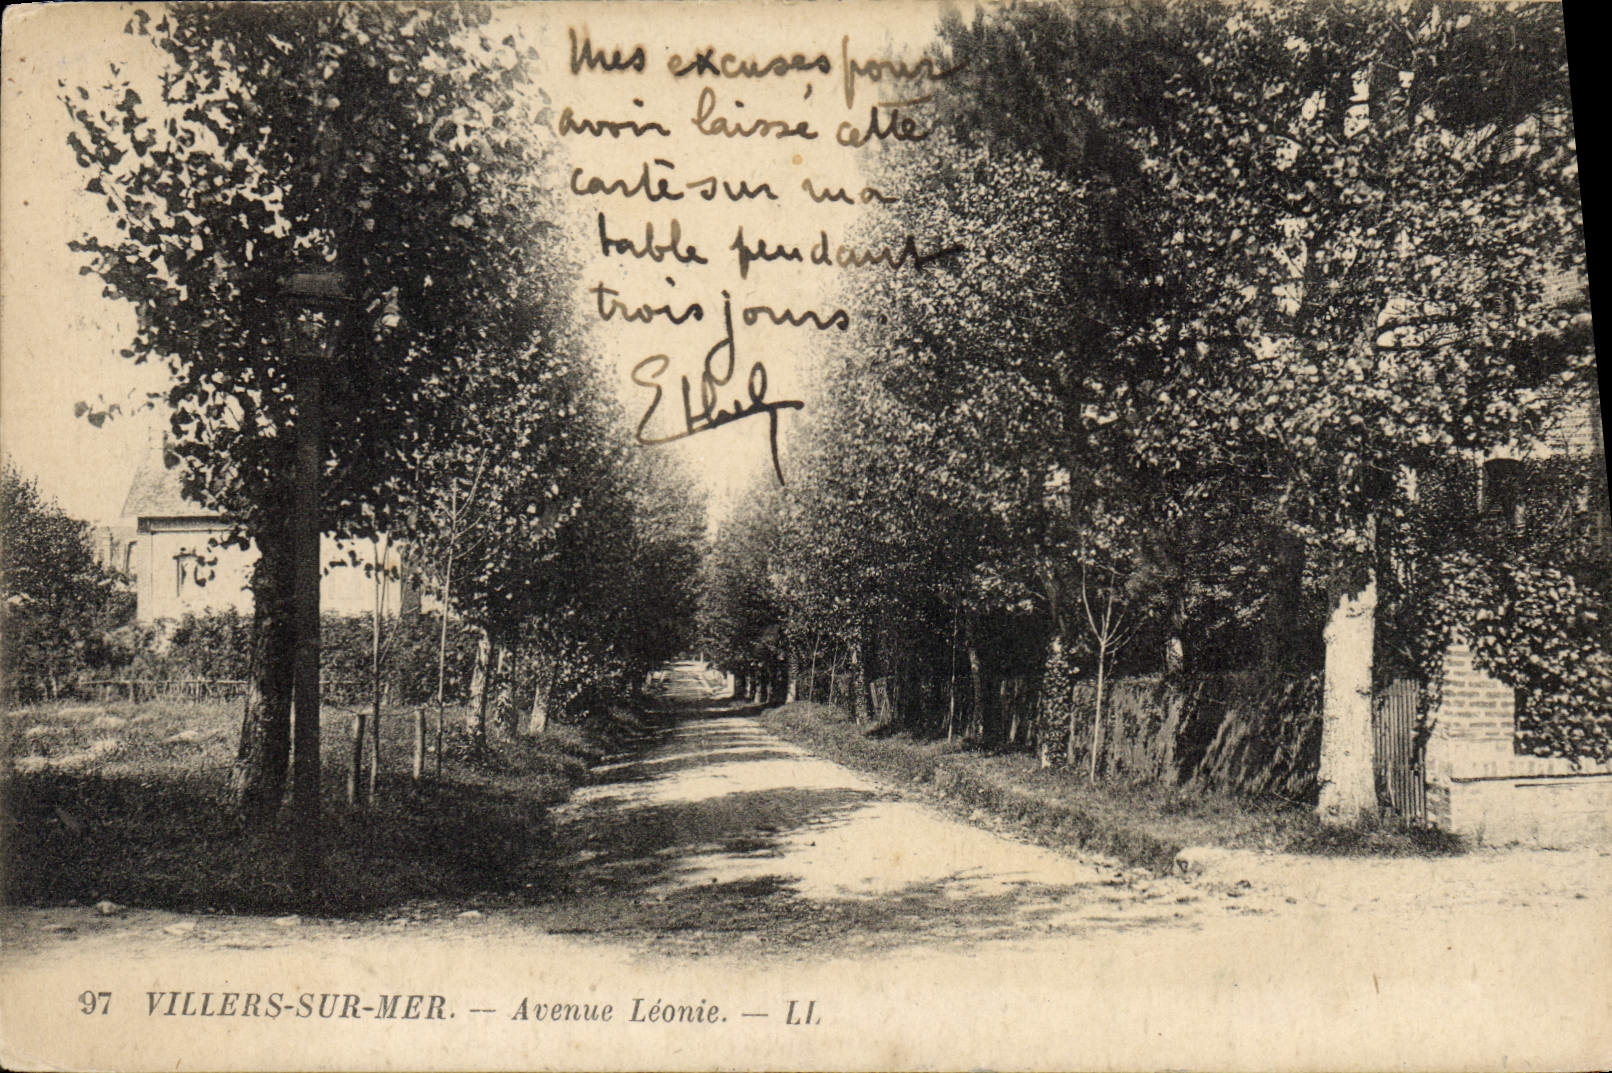 Mes excuses pour
avoir laissé cette
carte sur ma
table pendant
trois jours.
Ethel
97 VILLERS-SUR-MER. — Avenue Léonie. — LL